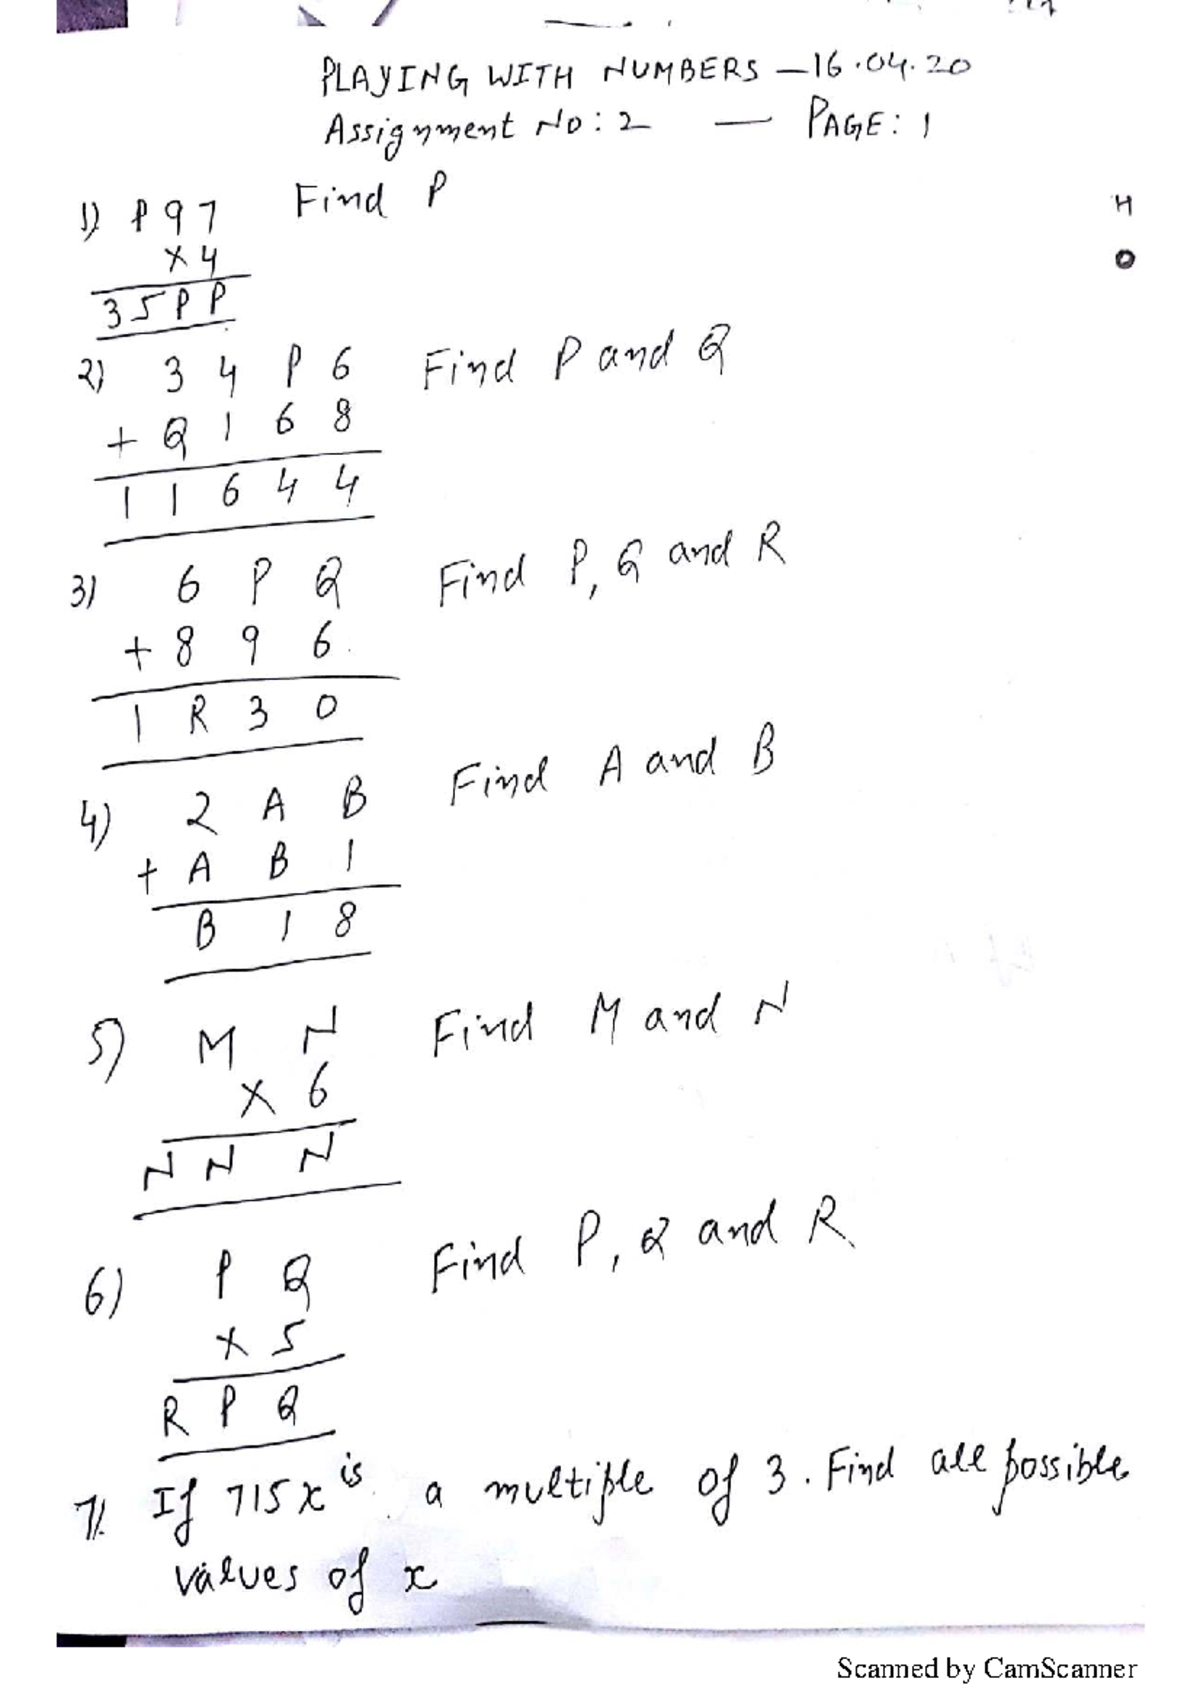 PLAYING WITH NUMBERS - 16.04.20
Assignment No: 2 - PAGE: 1
1) P 9 7 Find P
× 4
3 5 P P
2) 3 4 P 6 Find P and Q
+ Q 1 6 8
1 1 6 4 4
3) 6 P Q Find P, Q and R
+ 8 9 6
1 R 3 0
4) 2 A B Find A and B
+ A B 1
B 1 8
5) M N Find M and N
× 6
N N N
6) P Q Find P, Q and R
× 5
R P Q
7). If 715x is a multiple of 3. Find all possible
values of x
H
O
Scanned by CamScanner